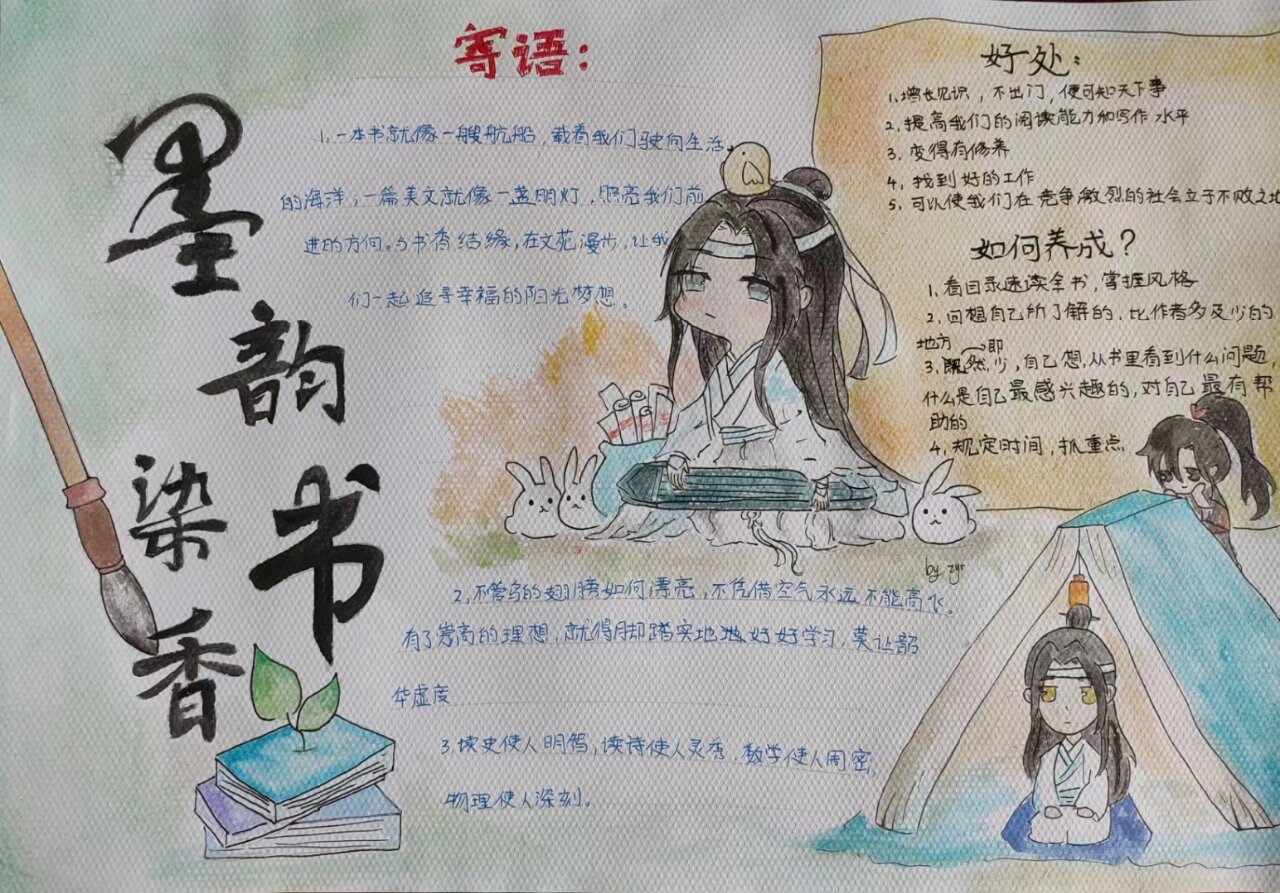 墨韵书香
染
寄语：
1.一本书就像一艘航船，载着我们驶向生活
的海洋，一篇美文就像一盏明灯，照亮我们前
进的方向。与书香结缘，在文苑漫步，让我
们一起追寻幸福的阳光梦想。
2.不管鸟的翅膀如何漂亮，不凭借空气永远不能高飞。
有了崇高的理想，就得脚踏实地地好好学习，莫让韶
华虚度
3.读史使人明智，读诗使人灵秀，数学使人周密，
物理使人深刻。
好处：
1.增长见识，不出门，便可知天下事
2.提高我们的阅读能力和写作水平
3.变得有修养
4.找到好的工作
5.可以使我们在竞争激烈的社会立于不败之地
如何养成？
1.看目录速读全书，掌握风格
2.回想自己所了解的，比作者多及少的
地方 即
3.既然少，自己想，从书里看到什么问题，
什么是自己最感兴趣的，对自己最有帮
助的
4.规定时间，抓重点
by zyr